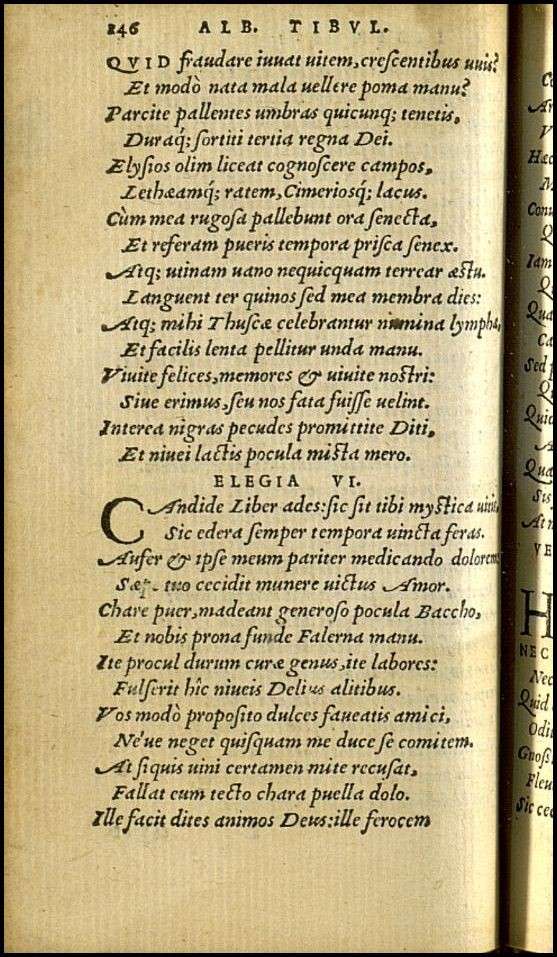 246 ALB. TIBVL.
QVID fraudare iuuat uitem, crescentibus uuis?
Et modò nata mala uellere poma manu?
Parcite pallentes umbras quicunq; tenetis,
Duraq́; sortiti tertia regna Dei.
Elysios olim liceat cognoscere campos,
Lethæamq́; ratem, Cimeriosq́; lacus.
Cùm mea rugosa pallebunt ora senecta,
Et referam pueris tempora prisca senex.
Atq; utinam uano nequicquam terrear æstu.
Languent ter quinos sed mea membra dies:
Atq; mihi Thuscæ celebrantur numina lymphæ,
Et facilis lenta pellitur unda manu.
Viuite felices, memores & uiuite nostri:
Siue erimus, seu nos fata fuisse uelint.
Interea nigras pecudes promittite Diti,
Et niuei lactis pocula mista mero.
ELEGIA VI.
CAndide Liber ades: sic sit tibi mystica uitis,
Sic edera semper tempora uincta feras.
Aufer & ipse meum pariter medicando dolorem:
Sæp. tuo cecidit munere uictus Amor.
Chare puer, madeant generoso pocula Baccho,
Et nobis prona funde Falerna manu.
Ite procul durum curæ genus, ite labores:
Fulserit hîc niueis Delius alitibus.
Vos modò proposito dulces faueatis amici,
Né'ue neget quisquam me duce se comitem.
At si quis uini certamen mite recusat,
Fallat eum tecto chara puella dolo.
Ille facit dites animos Deus: ille ferocem
NEC